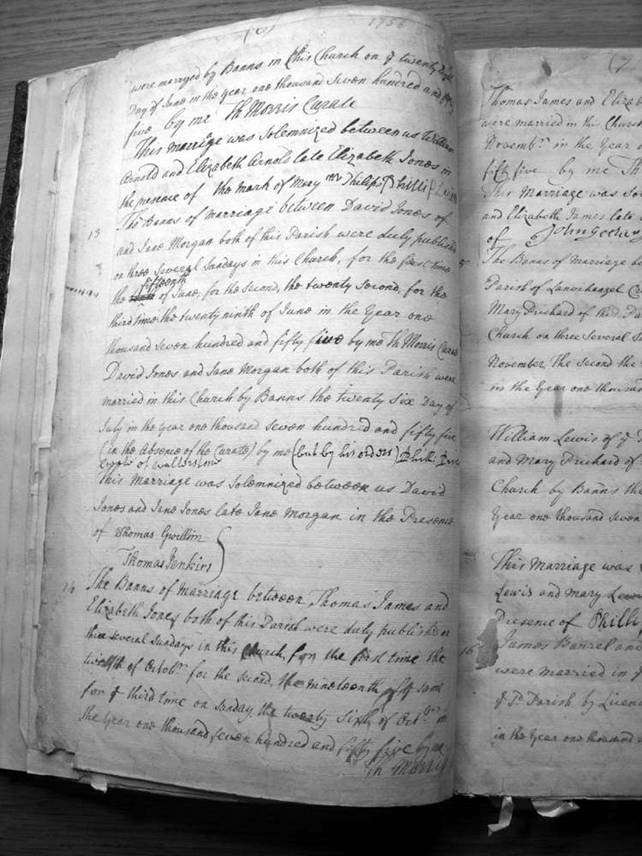 (6) 1755
were marryed by Banns in this Church on ye twenty
Day of June in the year one thousand Seven hundred and
five by me Th Morris Curate
This marriage was Solemnized between us William
Arnold and Elizabeth Arnold late Elizabeth Jones in
the presence of the mark of Mary Philips
13 The Banns of marriage between David Jones of
and Jane Morgan both of this Parish were duly publish
on three Several Sundays in this Church, for the first time
fifteenth
the of June, for the Second, the twenty Second, for the
third time the twenty ninth of June in the Year one
thousand seven hundred and fifty five by me Th Morris Curate
David Jones and Jane Morgan both of this Parish were
married in this Church by Banns the twenty Six Day of
July in the year one thousand seven hundred and fifty five
(in the absence of the Curate) by me (but by his orders)
of
This Marriage was Solemnized between us David
Jones and Jane Jones late Jane Morgan in the Presence
of Thomas Gwillim
Thomas Jenkins
14 The Banns of Marriage between Thomas James and
Elizabeth Jones both of this Parish were duly publish'd on
three several Sundays in this Church, for the first time the
twelfth of Octobr for the second, the nineteenth of same
for ye third time on Sunday the twenty Sixth of Octobr in
the Year one thousand seven hundred and fifty five by me
Th Morris
(7
Thomas James and Eliza
were married in this Church
Novembr in the Year
fifty five by me Th
This Marriage was So
and Elizabeth James late
of John
The Banns of Marriage be
Parish of
Mary Prichard of this Pa
Church on three Several S
November the Second the
in the Year one thousand
William Lewis of ye
and Mary Prichard of
Church by Banns the
Year one thousand seven
This Marriage was
Lewis and Mary Lewi
Presence of Phill
16 James and
were married in
ye Parish by Licen
in the Year one thousand